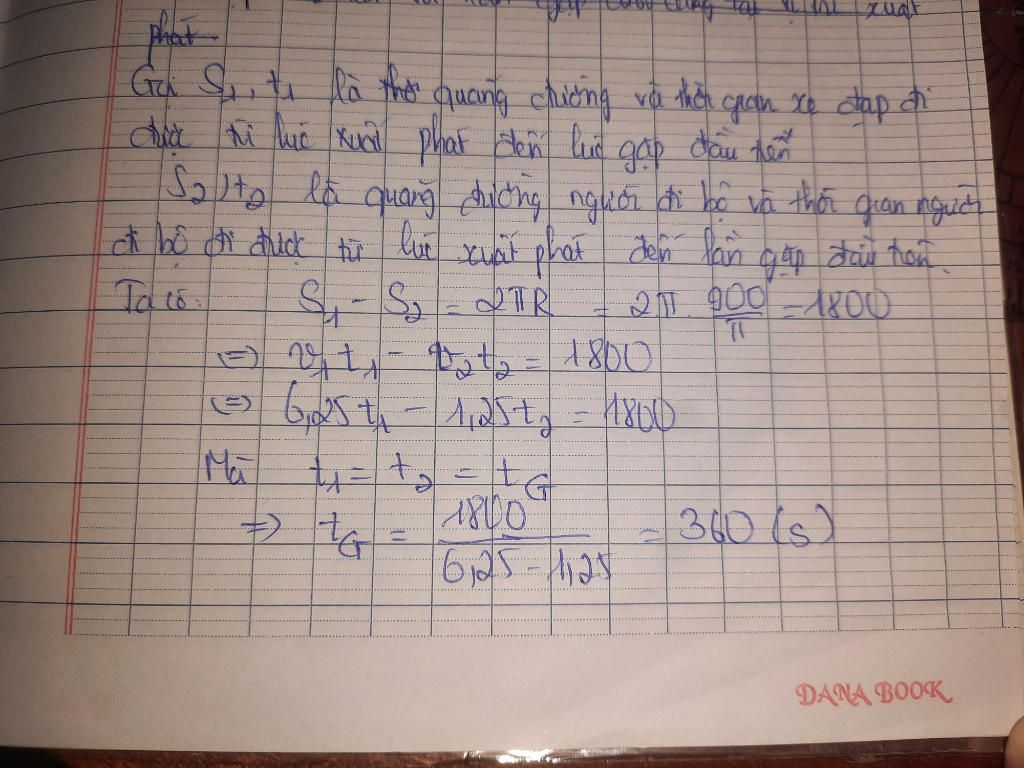 gặp cũng tại vị trí xuất
phát
Gọi S₁, t₁ là thờ quãng đường và thời gian xe đạp đi
được từ lúc xuất phát đến lúc gặp đầu tiên
S₂, t₂ là quãng đường người đi bộ và thời gian người
đi bộ đi được từ lúc xuất phát đến lần gặp đầu tiên.
Ta có: S₁ - S₂ = 2πR = 2π. 900/π = 1800
⇔ v₁t₁ - v₂t₂ = 1800
⇔ 6,25t₁ - 1,25t₂ = 1800
Mà t₁ = t₂ = t_G
⇒ t_G = 1800/(6,25 - 1,25) = 360 (s)
DANA BOOK